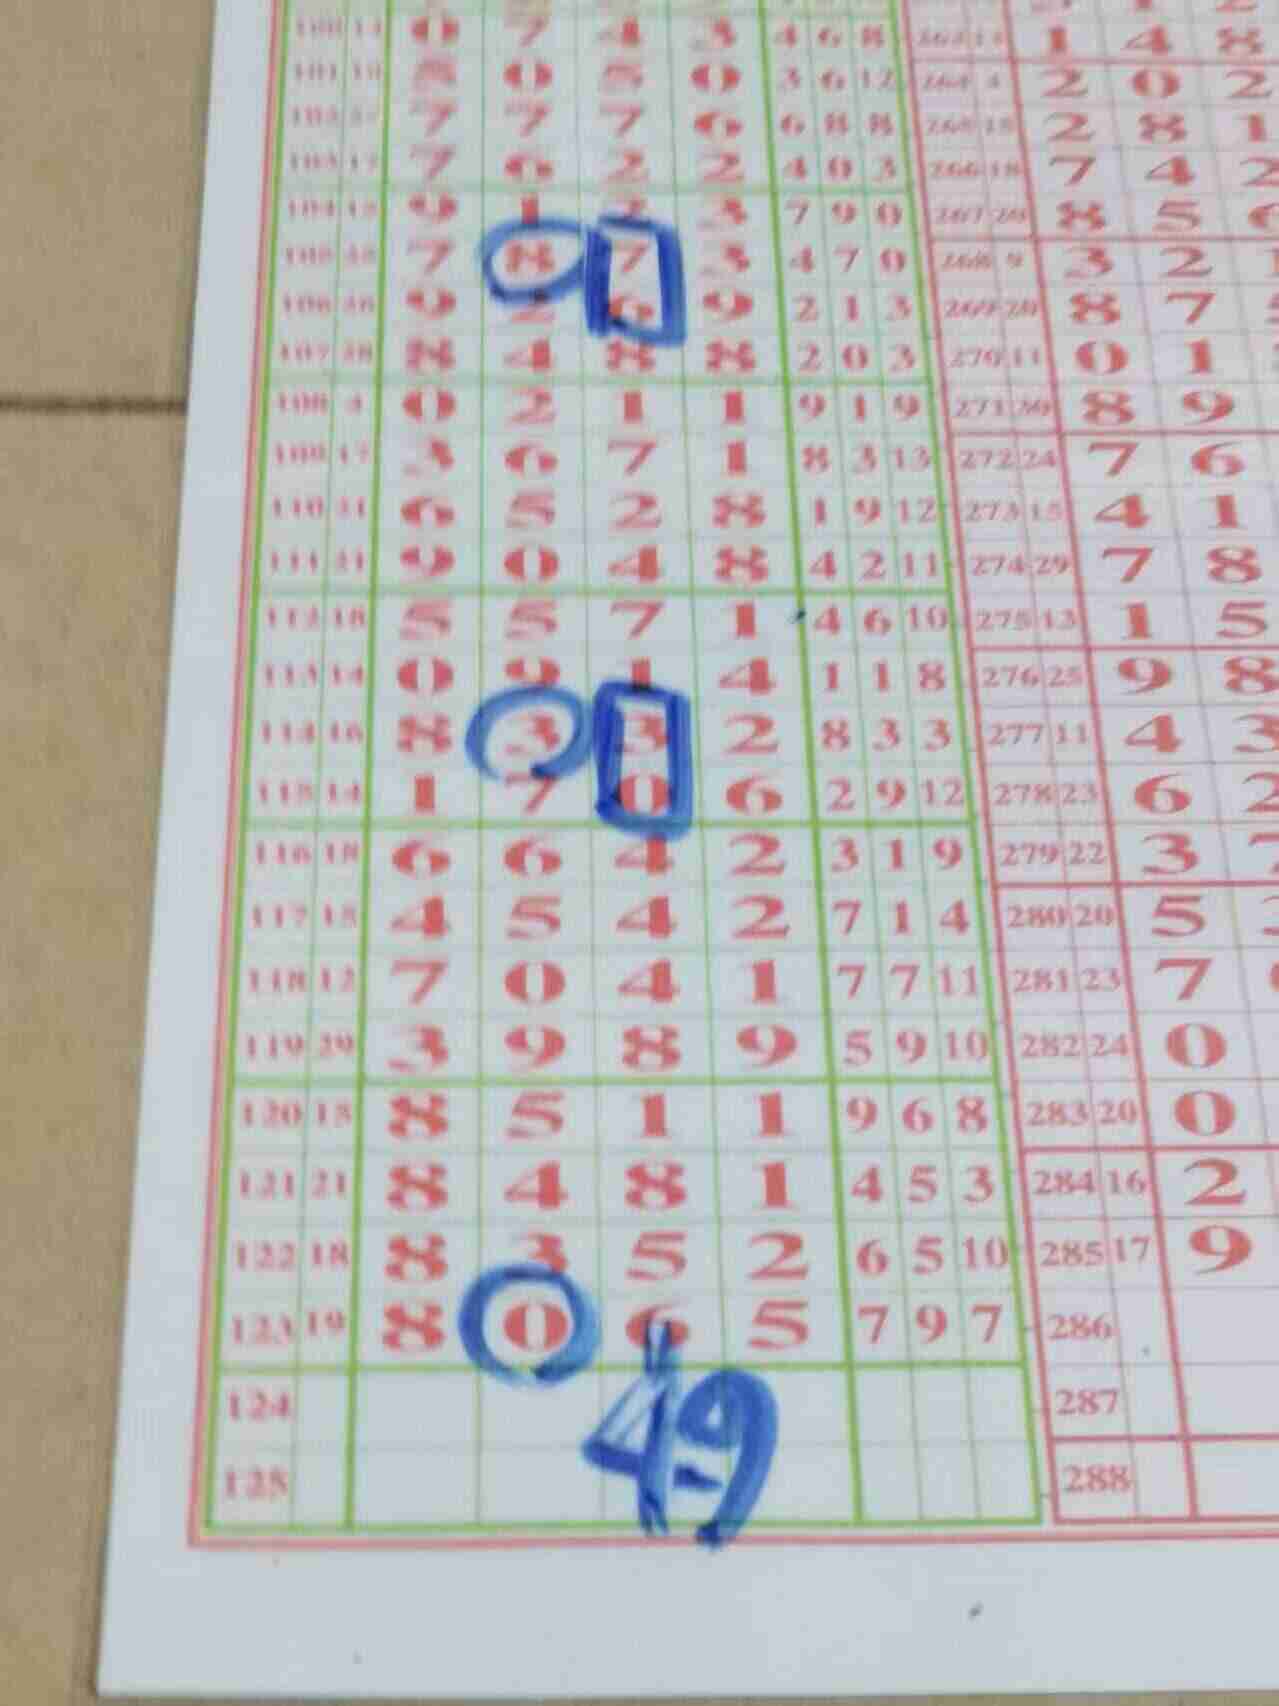 100 14 0 7 4 3 4 6 8 263 13 1 4 8
101 10 5 0 5 0 3 6 12 264 4 2 0 2
7 7 7 6 6 8 8 265 2 8 1
103 17 7 6 2 2 4 0 3 266 18 7 4 2
9 1 2 3 7 9 0 267 20 8 5
7 8 7 3 4 7 0 268 9 3 2
106 26 9 2 6 9 2 1 3 269 20 8 7
107 28 8 4 8 8 2 0 3 270 11 0 1
108 4 0 2 1 1 9 1 9 271 30 8 9
109 17 3 6 7 1 8 3 13 272 24 7 6
110 21 6 5 2 8 1 9 12 273 15 4 1
111 21 9 0 4 8 4 2 11 274 29 7 8
112 18 5 5 7 1 4 6 10 275 13 1 5
113 14 0 9 1 4 1 1 8 276 25 9 8
114 16 8 3 3 2 8 3 3 277 11 4 3
115 14 1 7 0 6 2 9 12 278 23 6 2
116 18 6 6 4 2 3 1 9 279 22 3 7
117 15 4 5 4 2 7 1 4 280 20 5
118 12 7 0 4 1 7 7 11 281 23 7
119 29 3 9 8 9 5 9 10 282 24 0
120 15 8 5 1 1 9 6 8 283 20 0
121 21 8 4 8 1 4 5 3 284 16 2
122 18 8 3 5 2 6 5 10 285 17 9
123 19 8 0 6 5 7 9 7 286
124 49 287
125 288